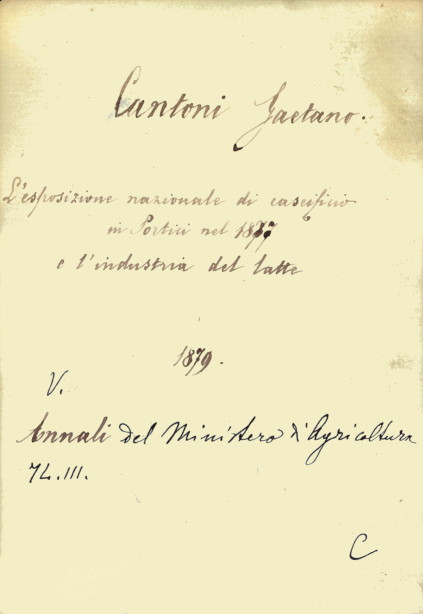 Cantoni Gaetano.
L'esposizione nazionale di caseificio
in Portici nel 1877
e l'industria del latte
1879.
V.
Annali del Ministero d'Agricoltura
74.III.
C